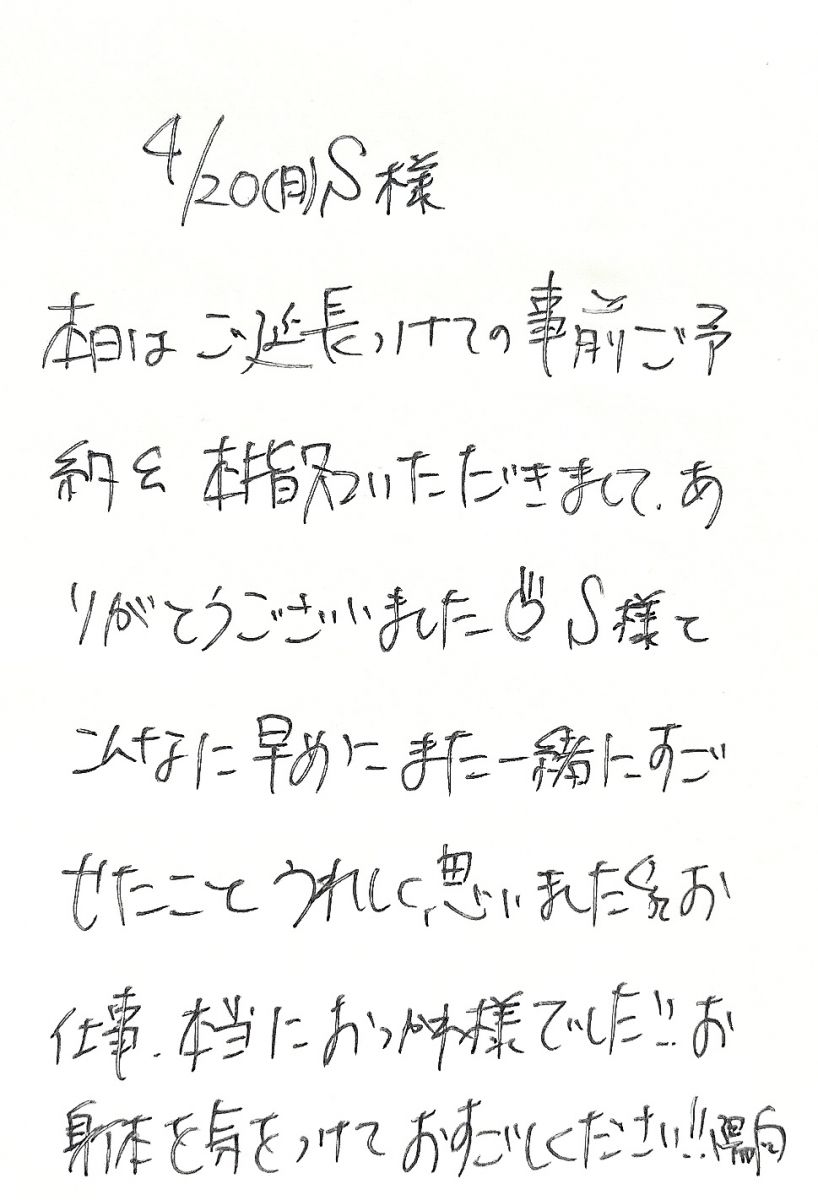 4/20(日)S様
本日はご延長つけての事前ご予
約と本指名いただきまして、あ
りがとうございました S様と
こんなに早めにまた一緒にすご
せたことうれしく思いました お
仕事、本当におつかれ様でした!!お
身体を気をつけておすごしください!!陽向